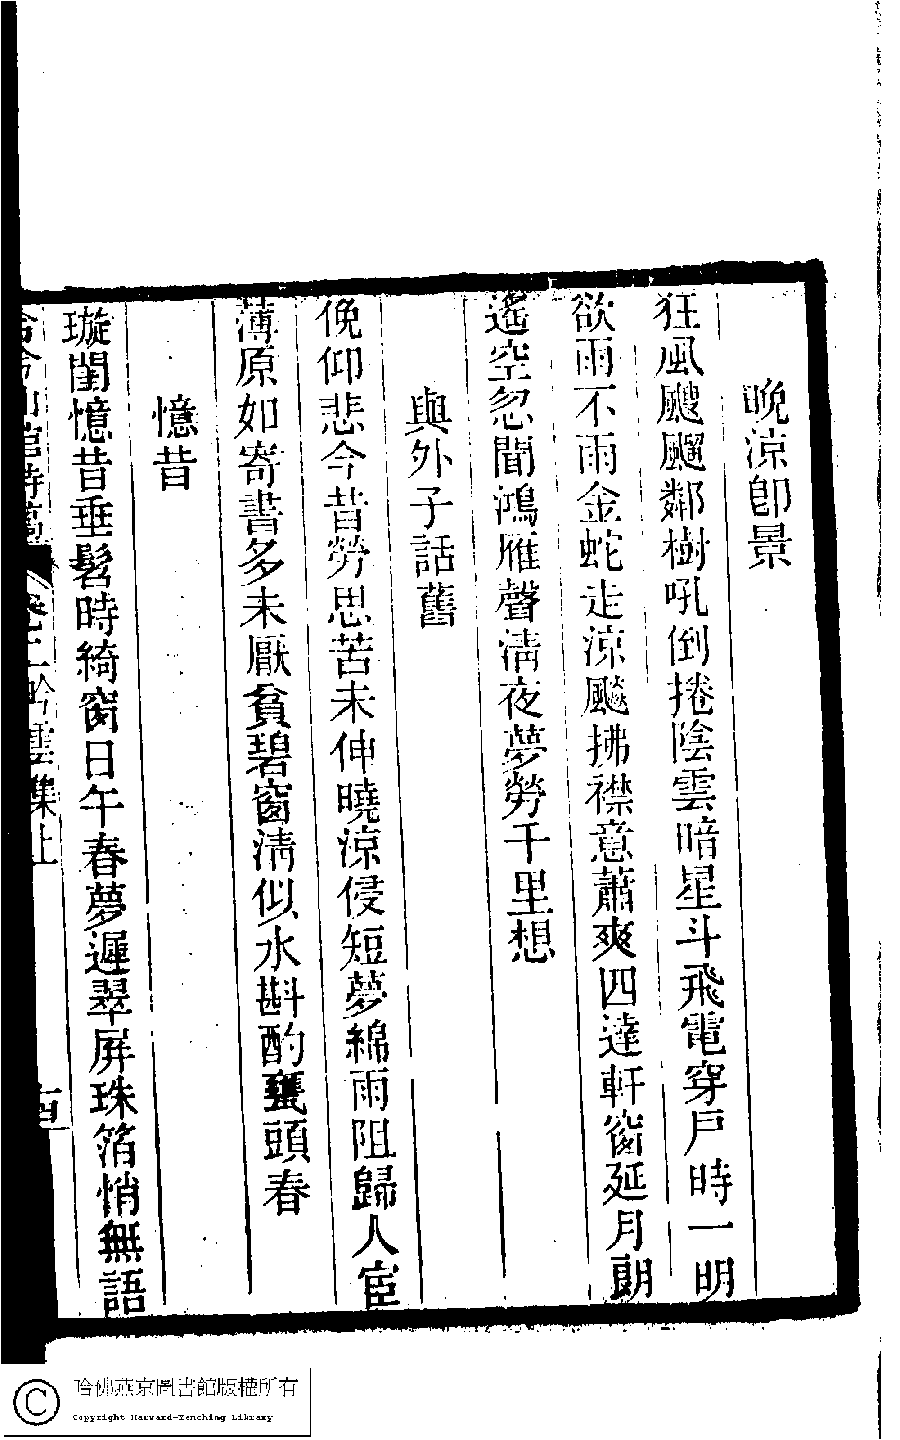 晚涼卽景
狂風颼飀鄰樹吼倒捲陰雲暗星斗飛電穿戶時一明
欲雨不雨金蛇走涼飈拂襟意蕭爽四達軒窗延月朗
遙空忽聞鴻雁聲淸夜夢勞千里想
與外子話舊
俛仰悲今昔勞思苦未伸曉涼侵短夢綿雨阻歸人宦
薄原如寄書多未厭貧碧窗淸似水斟酌甕頭春
憶昔
璇閨憶昔垂髫時綺窗日午春夢遲翠屛珠箔悄無語
山館詩
二吟雲集上
哈佛燕京圖書館版權所有
Copyright Harvard-Yenching Library